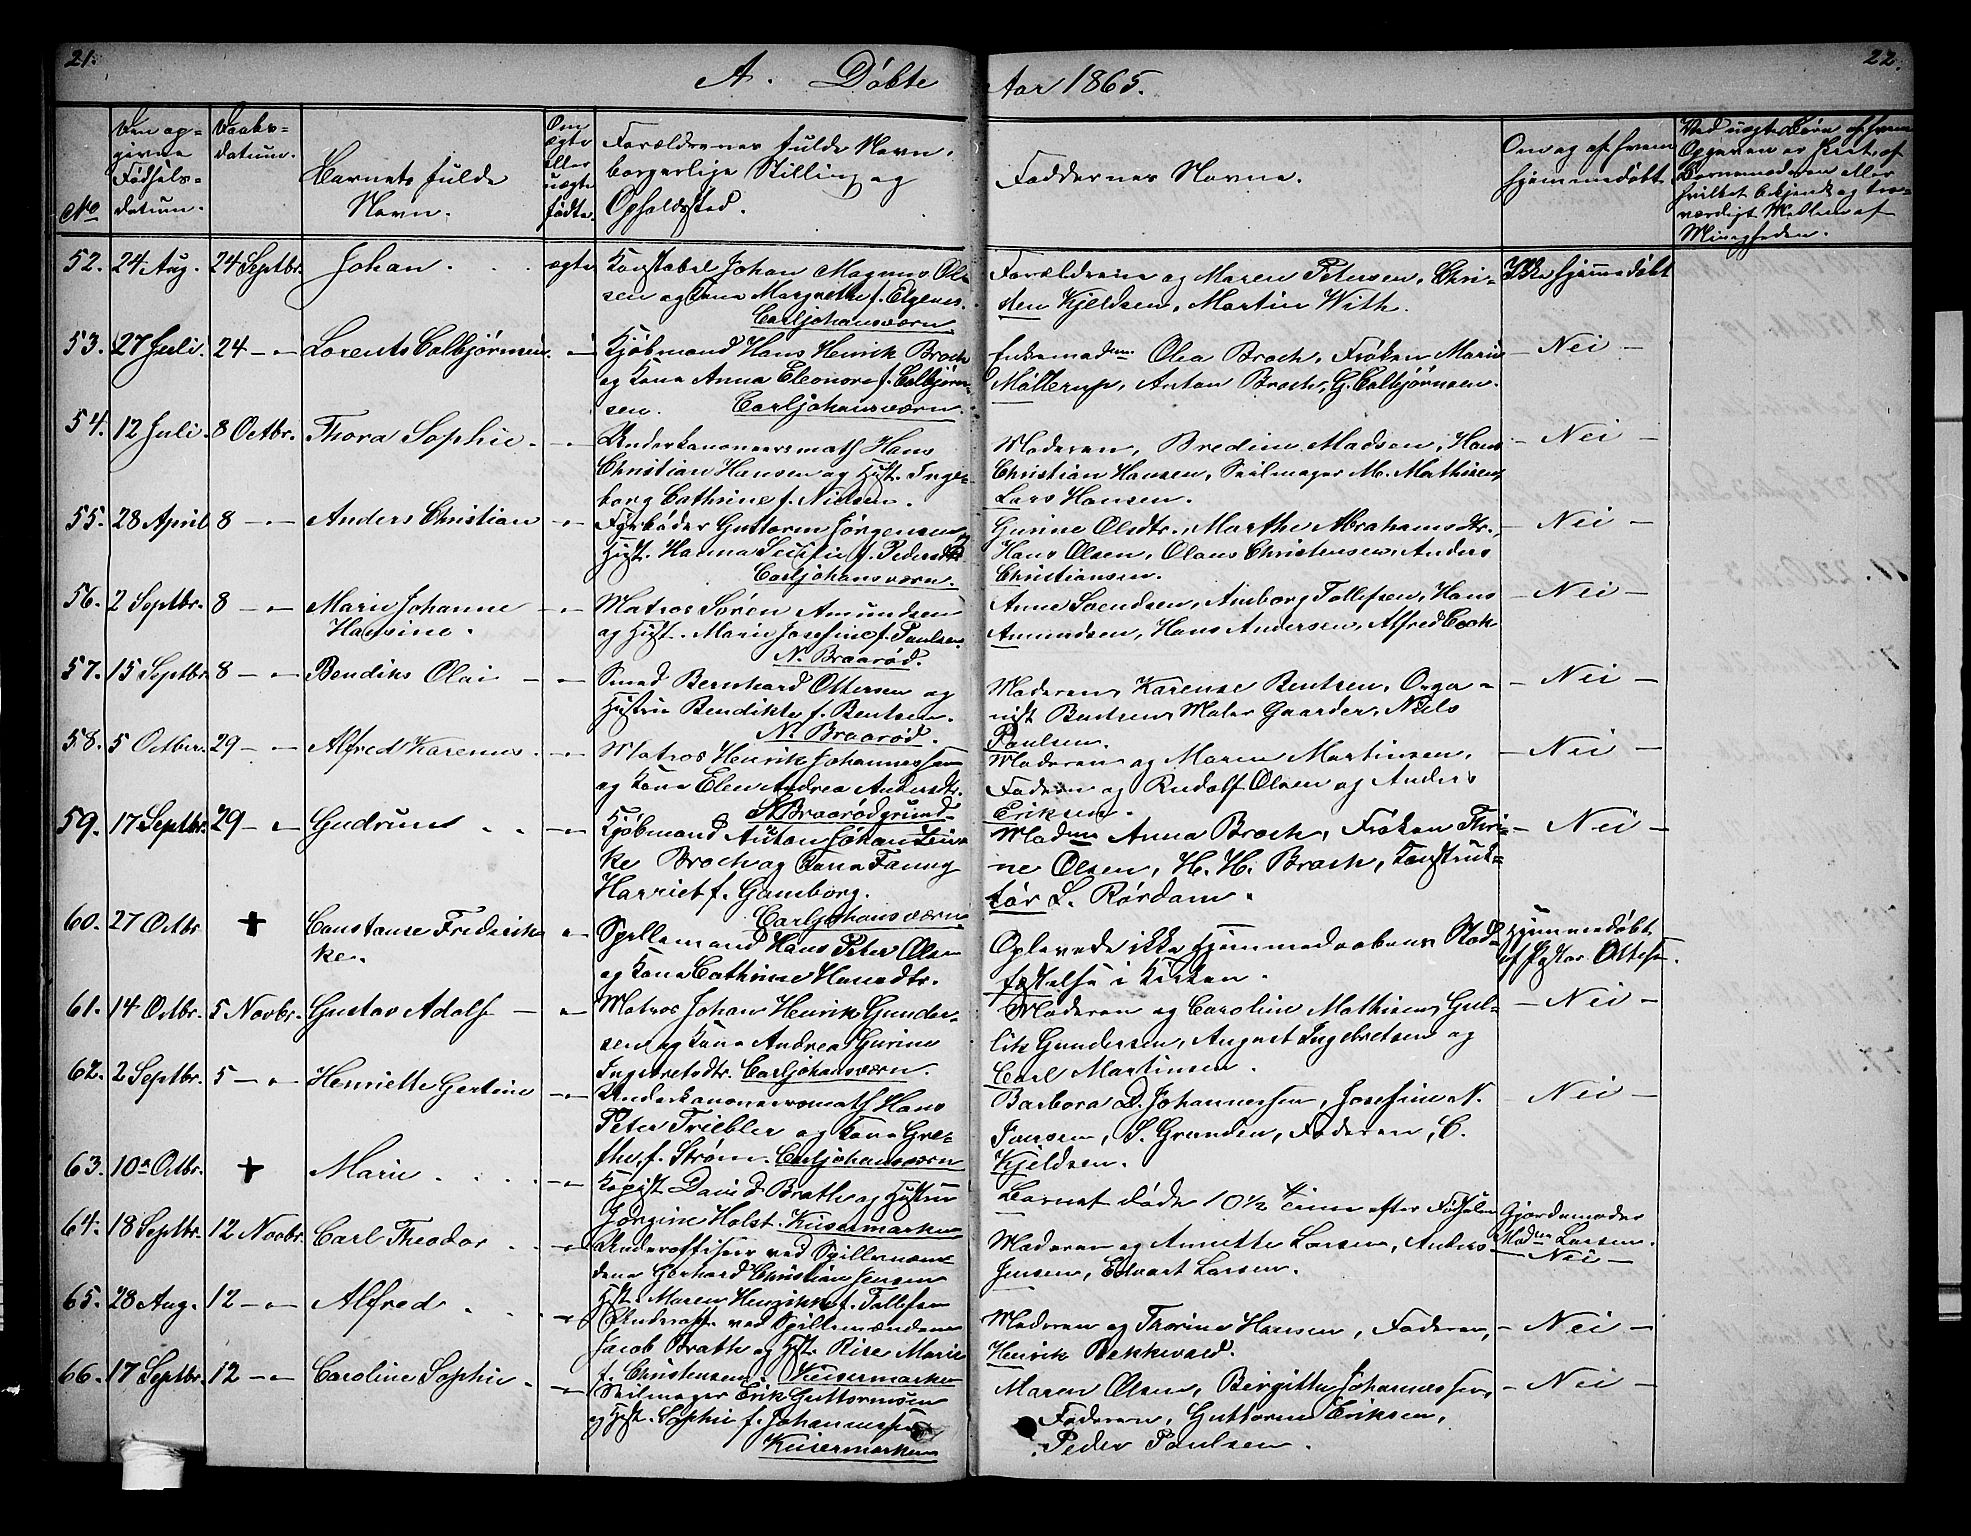 21.
22.
A. Døbte Aar 1865.
No
Den op-
givne
Fødsels-
datum.
Daabs-
datum.
Barnets fulde
Navn.
Om
ægte
eller
uægte
fødte.
Forældrenes fulde Navn,
borgerlige Stilling og
Opholdssted.
Faddernes Navne.
Om og af hvem
hjemmedøbt
Ved uægte Børn af hvem
Opgaven er skeet, af
Barnemoderen eller
hvilket bekjendt og tro-
værdigt Mellem af
Menigheden.
52. 24 Aug. 24 Septbr. Johan. ægte
Konstabel Johan Magnus Ol-
sen og Kone Margrethe f. Elgenes.
Carljohansværn
Forældrene og Maren Petersen, Chri-
den Kjeldsen, Martin With.
Ikke hjemmedøbt
53. 27 Juli. 24 — " Lorents Colbjørnsen — " —
Kjøbmand Hans Henrik Broch
og Kone Anna Eleonora f. Colbjørn-
sen. Carljohansværn.
Enkemadm Olea Broch, Frøken Marie
Møllerup, Anton Broch, G. Colbjørnsen.
— Nei —
54. 12 Juli. 8 Octbr. Thora Sophie. — " —
Underkanoneersmath Hans
Christian Hansen og Hust. Inge-
borg Cathrine f. Nielsen.
Moderen, Bredine Madsen, Hans
Christian Hansen, Seilmager M. Mathisen,
Lars Hansen.
— Nei —
55. 28 April 8 — " — Anders Christian — " —
Fyrbøder Guttorm Jørgensen og
Hust. Hanna Secilie f. Pedersdtr
Carljohansværn.
Gurine Olsdtr., Marthe Abrahamsdtr.,
Hans Olsen, Olaus Christensen, Anders
Christiansen.
— Nei —
56. 2 Septbr. 8 — " — Marie Johanne
Hansine. — " —
Matros Søren Amundsen
og Hust. Marie Josefine f. Paulsen.
N. Braarød.
Anne Svendsen, Amborg Tollefsen, Hans
Amundsen, Hans Andersen, Alfred Cock
— Nei —
57. 15 Septbr. 8 — " — Bendiks Olai — " —
Smed Bernhard Ottersen og
Hustru Bendikte f. Bentsen.
N. Braarød.
Moderen, Karense Bentsen, Orga-
nist Bentsen, Maler Gaarder, Niels
Paulsen.
— Nei —
58. 5 Octber. 29 — " — Alfred Karenus. — " —
Matros Henrik Johannessen
og Kone Elen Andrea Andersdtr.
N. Braarødgrund
Moderen og Maren Martinsen,
Faderen og Rudolf Olsen og Anders
Eriksen.
— Nei —
59. 17 Septbr. 29 — " — Gudrun — " —
Kjøbmand Anton Johan Lein-
ke Broch og Kone Fanny
Harriet f. Gamborg.
Carljohansværn
Madm Anna Broch, Frøken Thri-
ne Olsen, H. H. Broch, Konstruk-
tør L. Rørdam.
— Nei —
60. 27 Octbr + Constanse Frederik-
ke. "
Spillemand Hans Peter Olsen
og Kone Cathrine Hansdtr.
Oplevede ikke Hjemmedaabens Stad-
fæstelse i Kirken.
Hjemmedøbt
af Pastor Ottesen.
61. 14 Octbr. 5 Novbr. Gustav Adolf — " —
Matros Johan Henrik Gunder-
sen og Kone Andrea Gurine
Ingebretsdtr. Carljohansværn.
Moderen og Caroline Mathisen, Gul-
lik Gundersen, August Ingebretsen og
Carl Martinsen.
— Nei —
62. 2 Septbr. 5 — " Henriette Gertine — " —
Underkanoneersmath Hans
Peter Triebler og Kone Gre-
the, f. Strøm. Carljohansværn
Barbora D. Johannessen, Josefine N.
Jenssen, S. Grunden, Faderen, C.
Kjeldsen.
— Nei —
63. 10de Octbr. + Marie — " —
Kopist David Brath og Hustru
Jørgine Holst. Keisermarken
Barnet døde 10 1/2 Time efter Fødselen
Gjordemoder
Madm Larsen.
64. 18 Septbr. 12 Novbr. Carl Theodor — " —
Underoffiseer ved Spillemæn-
dene Gerhard Christian Jensen
Hst. Maren Henrikke f. Tollefsen
Moderen og Annette Larsen, Anders
Jensen, Edvart Larsen.
— Nei —
65. 28 Aug. 12 — " — Alfred — " —
Underoff. ved Spillemændene
Jacob Brath og Hst. Rise Marie
f. Christensen. Keisermarken
Moderen og Thorine Hansen, Faderen,
Henrik Bekkevald.
— Nei —
66. 17 Septbr. 12 — " — Caroline Sophie — " —
Seilmager Erik Guttormsen
og Hst. Sophie f. Johannessen
Keisermarken
Maren Olsen, Birgitte Johannessen,
Faderen, Guttorm Eriksen,
Peder Paulsen.
— Nei —